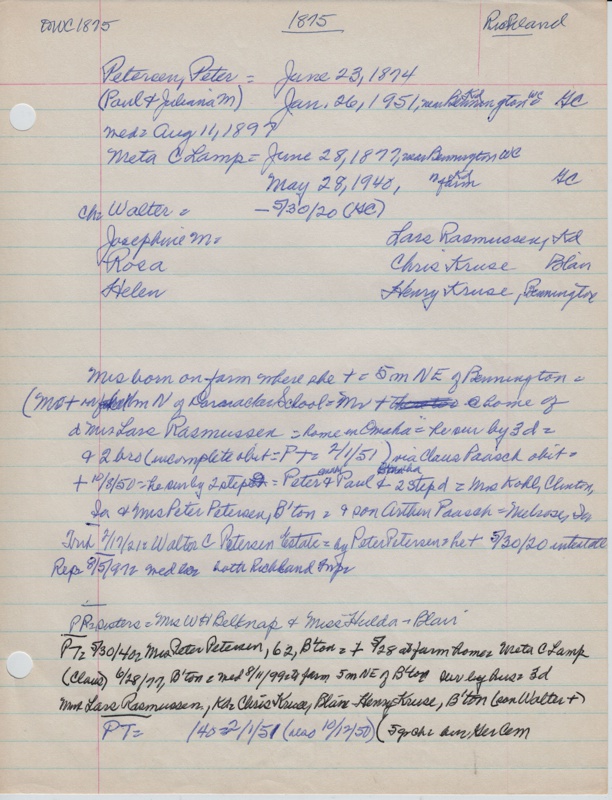 OWC1875 1875 Richland
Petersen, Peter = June 23, 1874
(Paul & Juliana M) Jan. 26, 1951, near Bennington WC GC
med= Aug 11, 1897
Meta C Lamp = June 28, 1877, near Bennington WC
May 28, 1940, farm GC
ch= Walter = - 5/30/20 (GC)
Josephine M= Lars Rasmussen, Kd
Rosa Chris Kruse Blair
Helen Henry Kruse, Bennington
Mrs born on farm where she + = 5m NE of Bennington =
(Mr + N of School = Mr + @ home of
d Mrs Lars Rasmussen = home in Omaha = he sur by 3d =
& 2 bros (incomplete obit = PT = 2/1/51) via Claus Paasch obit =
+ 10/8/50 = he sur by 2 steps = Peter & Paul & 2 stepd = Mrs Kohl, Clinton,
Ia & Mrs Peter Petersen, B'ton = & son Arthur Paasch = Melrose, Ia
7/17/21 = Walter C Petersen Estate = by Peter Petersen = he + 5/30/20 intestate
Rep 8/5/97= med both Richland
PP= sisters = Mrs W H Belknap & Miss Hulda - Blair
PT= 5/30/40= Mrs Peter Petersen, 62, B'ton = + 5/28 at farm home= Meta C Lamp
(Claus) 6/28/77, B'ton = med 8/11/99 to farm 5m NE of B'ton sur by hus = 3d
Mmes Lars Rasmussen, Kd= Chris Kruse, Blair = Henry Kruse, B'ton (son Walter +)
PT= 2/1/51 (also 10/12/50) (5 grch sur, Ger Cem